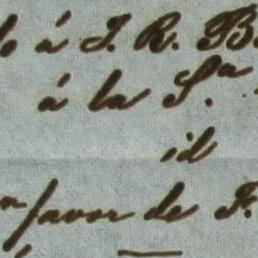 á J. R. B
á la S.ª
id
favor de F.